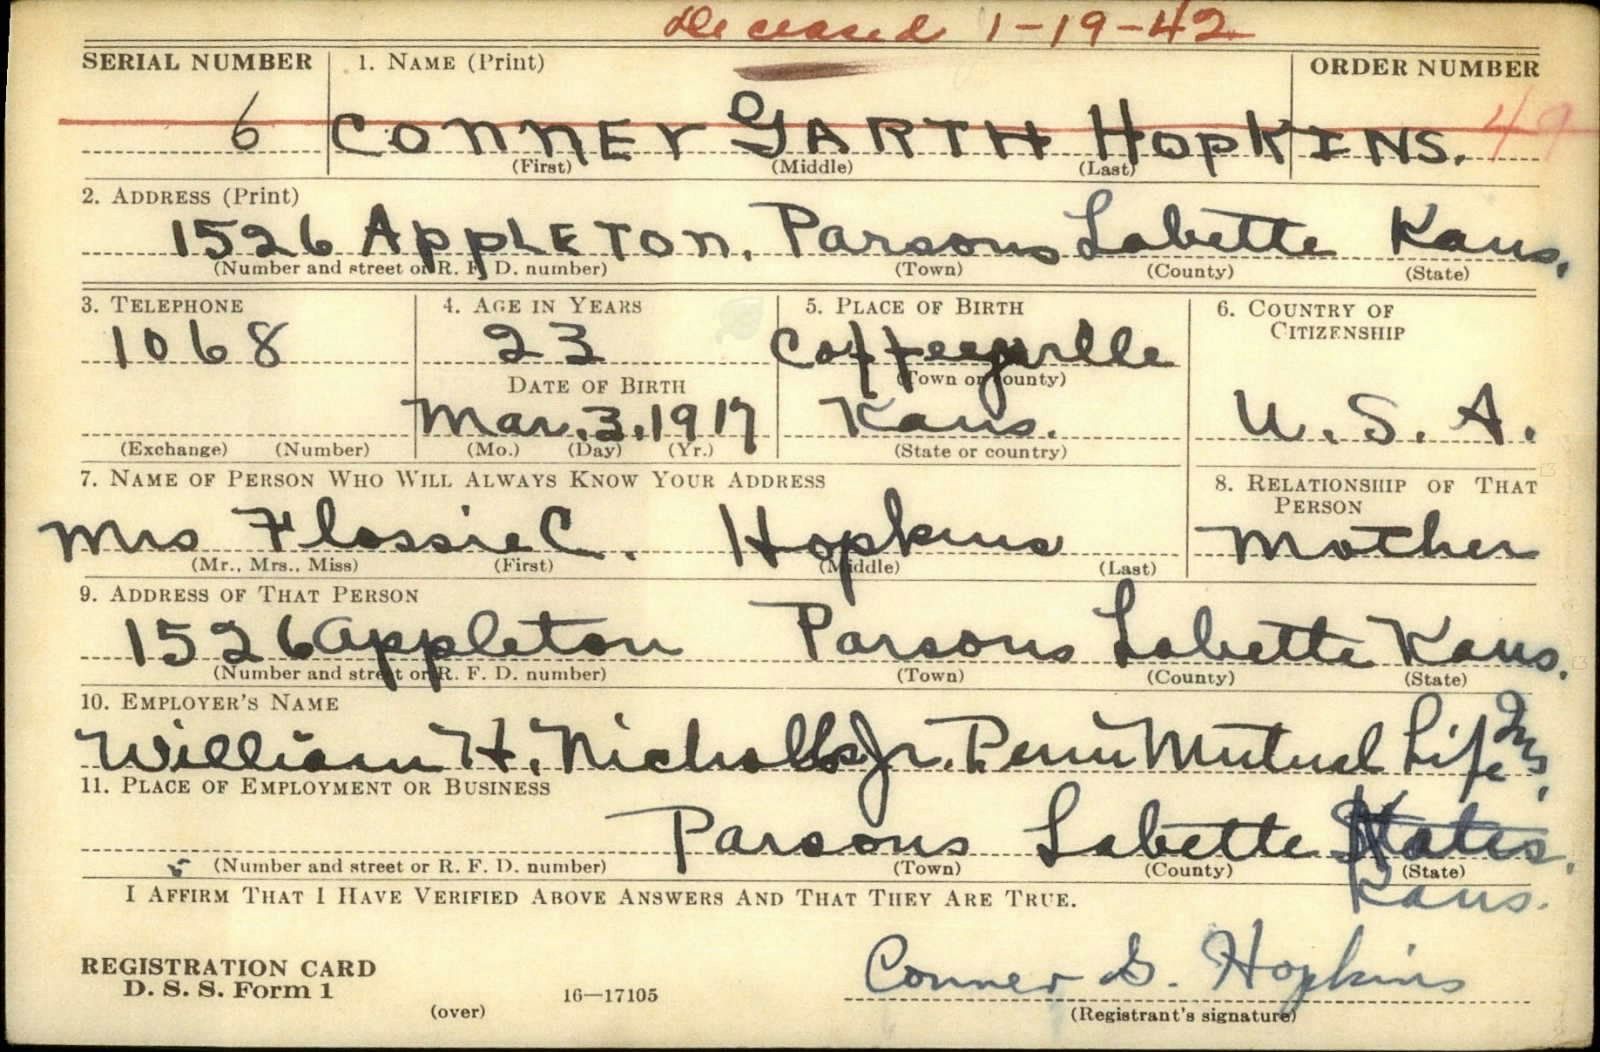 Deceased 1-19-42
SERIAL NUMBER 1. NAME (Print) ORDER NUMBER
6 CONNER GARTH HOPKINS. 49
(First) (Middle) (Last)
2. ADDRESS (Print)
1526 APPLETON. Parsons Labette Kans.
(Number and street or R. F. D. number) (Town) (County) (State)
3. TELEPHONE 4. AGE IN YEARS 5. PLACE OF BIRTH 6. COUNTRY OF CITIZENSHIP
1068 23 Coffeyville
DATE OF BIRTH (Town or county)
Mar. 3. 1917 Kans. U. S. A.
(Exchange) (Number) (Mo.) (Day) (Yr.) (State or country)
7. NAME OF PERSON WHO WILL ALWAYS KNOW YOUR ADDRESS 8. RELATIONSHIP OF THAT PERSON
Mrs Flossie C. Hopkins Mother
(Mr., Mrs., Miss) (First) (Middle) (Last)
9. ADDRESS OF THAT PERSON
1526 Appleton Parsons Labette Kans.
(Number and street or R. F. D. number) (Town) (County) (State)
10. EMPLOYER'S NAME
William H. Nicholls Jr. Penn Mutual Life Ins.
11. PLACE OF EMPLOYMENT OR BUSINESS
Parsons Labette States.
(Number and street or R. F. D. number) (Town) (County) (State)
Kans.
I AFFIRM THAT I HAVE VERIFIED ABOVE ANSWERS AND THAT THEY ARE TRUE.
REGISTRATION CARD Conner G. Hopkins
D. S. S. Form 1
(over) 16—17105 (Registrant's signature)